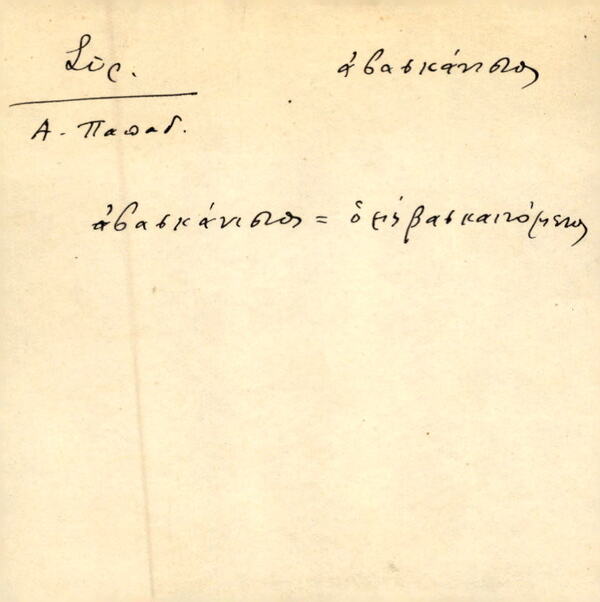 Σύρ. ἀβασκάνιστος
Α. Παπαδ.
ἀβασκάνιστος = ὁ μὴ βασκαινόμενος